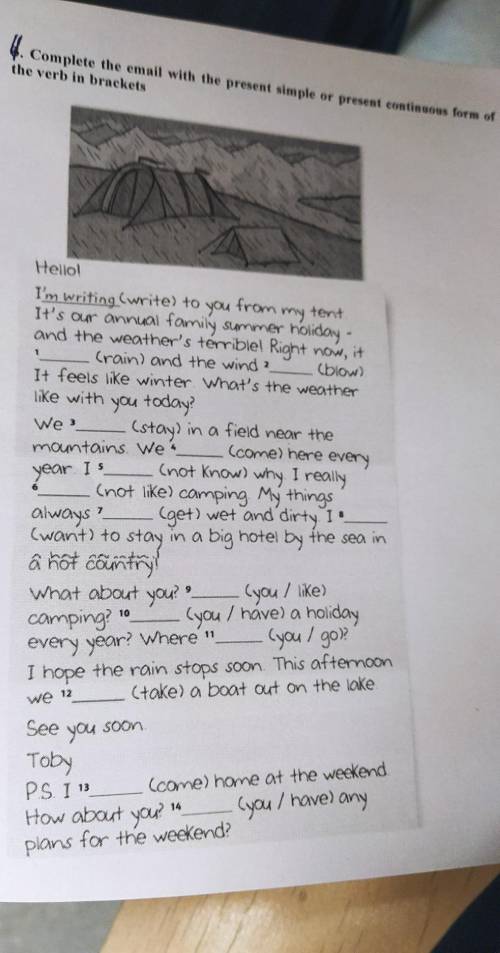 4. Complete the email with the present simple or present continuous form of
the verb in brackets
Hello!
I'm writing (write) to you from my tent.
It's our annual family summer holiday -
and the weather's terrible! Right now, it
1______ (rain) and the wind 2______ (blow)
It feels like winter. What's the weather
like with you today?
We 3______ (stay) in a field near the
mountains. We 4______ (come) here every
year. I 5______ (not know) why. I really
6______ (not like) camping. My things
always 7______ (get) wet and dirty. I 8______
(want) to stay in a big hotel by the sea in
a hot country!
What about you? 9______ (you / like)
camping? 10______ (you / have) a holiday
every year? Where 11______ (you / go)?
I hope the rain stops soon. This afternoon
we 12______ (take) a boat out on the lake.
See you soon.
Toby
P.S. I 13______ (come) home at the weekend.
How about you? 14______ (you / have) any
plans for the weekend?